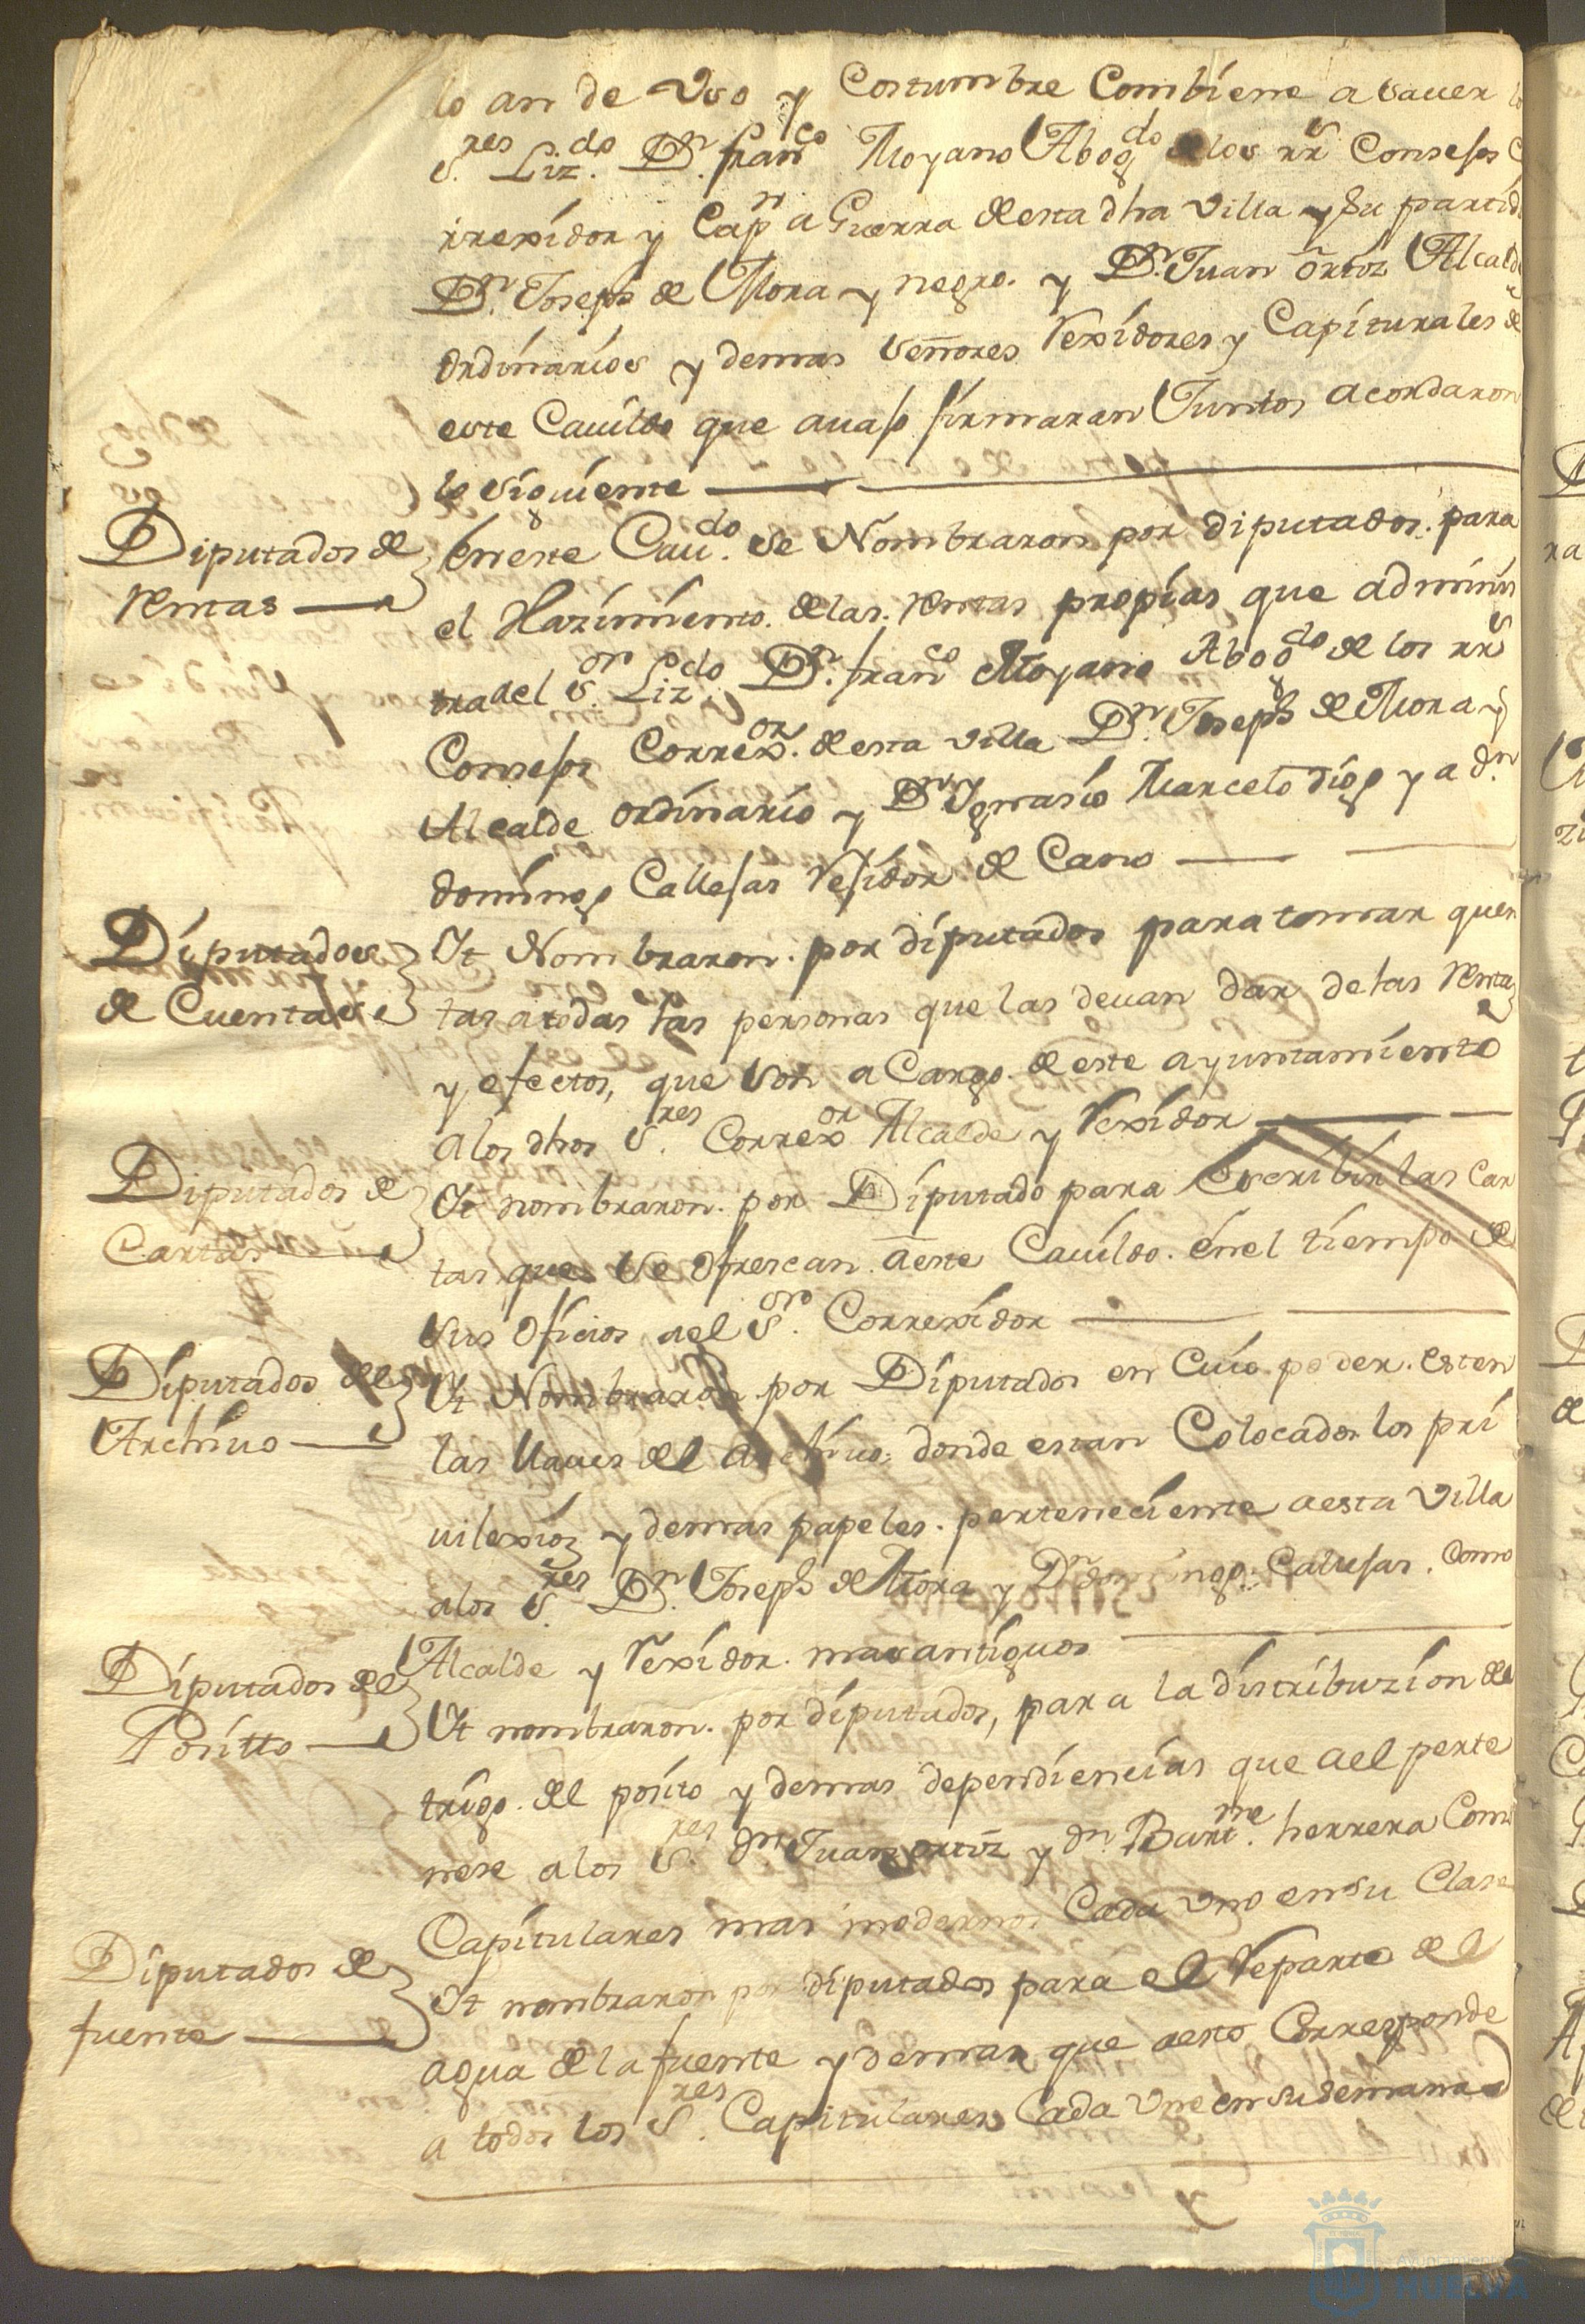 lo an de Vso y Costumbre Combiene a sauer
S.res Liz.do Dn. franco Moyano Abogdo delos RRs Consejos
rrexidor y Capn a Guerra de esta dha Villa y su partid
Dn. Joseph de Mora y negro. y Dn. Juan ortiz Alcald
ordinarios y demas señores Rexidores y Capiturales de
este Cauildo que auajo firmaran Juntos acordaron
lo siguiente
Diputados de
Rentas
En este Caudo. se Nombraron por diputados para
el Hazimiento. de las. Rentas propias que adminis
tra ael Sor. Lizdo. Dn. franco Moyano Abogdo de los RRs
Consejos Correxor. de esta villa Dn. Joseph de Mora y
Alcalde ordinario y Dn Ygnasio Marcelo digo y a dn.
domingo Callejas Rejidor de Cano
Diputados
de Cuentas
Yt Nombraron. por diputados para tomar quen
tas a todas las personas que las deuan dar de las Rentas
y efectos, que son a Cargo. de este ayuntamiento
a los dhos S.res Correxor Alcalde y Rexidor
Diputados de
Cartas
Yt nombraron. por Diputado para Escribir las Car
tas que se ofrescan a este Cauildo. en el tiempo de
sus oficios ael Sor. Correxidor
Diputados del
Archiuo
Yt Nombraron por Diputados en Cuio poder. esten
las llaues del archiuo. donde estan Colocados los pri
uilexios y demas papeles. perteneciente a esta Villa
a los S.res Dn. Joseph de Mora y Dn domingo. Callejas. Como
Alcalde y Rexidor. mas antiguos
Diputados del
Positto
Yt nombraron. por diputados, para la distribuzion del
trigo. del posito y demas dependiencias que a el perte
nese a los S.res Dn Juan ortiz y dn Bartme. herrera Como
Capitulares mas modernos Cada vno en su Clase
Diputados de
fuente
Yt nombraron por diputados para el Reparto del
agua de la fuente y demas que a esto Corresponde
a todos los S.res Capitulares Cada vno en su semana
Ayuntamiento de
HUELVA